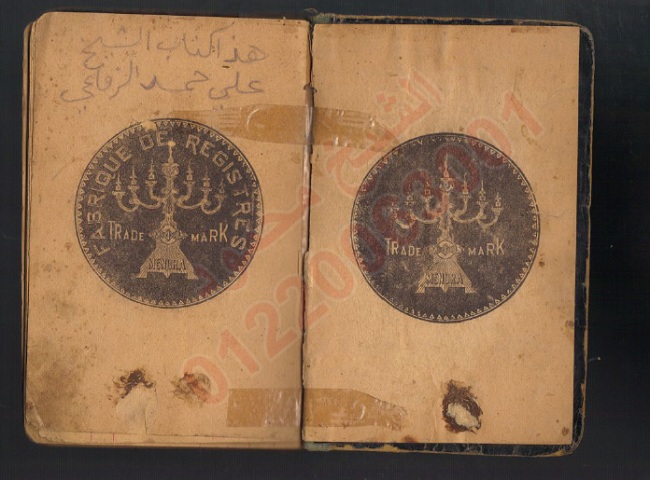 هذا كتاب الشيخ
علي حمد الرفاعي
FABRIQUE DE REGISTRES
TRADE MARK
MENORA
TRADE MARK
MENORA
الشيخ محمد
01220983001